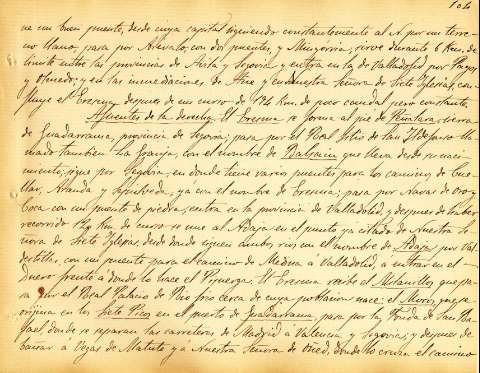 ne un buen puente, desde cuya capital siguiendo constantemente al N. por un terre-
no llano, pasa por Arévalo, con dos puentes, y Muriguria, sirve durante 6 Km. de
límite entre las provincias de Avila y Segovia y entra en la de Valladolid por
y Olmedo, y en las inmediaciones de Alne y en nuestra Señora de Siete Iglesias, con-
fluye el Eresma después de un curso de 124 Km. de poco caudal pero constante.
Afluentes de la derecha. El Eresma se forma al pie de Peñalara, sierra
de Guadarrama, provincia de Segovia; pasa por el Real Sitio de San Ildefonso lla-
mado tambien La Granja, con el nombre de Balsain que lleva desde su naci-
miento, sigue por Segovia, en donde tiene varios puentes para los caminos de Cue-
llar, Aranda y Sepulveda, ya con el nombre de Eresma; pasa por Navas de Oro y
Coca con un puente de piedra, entra en la provincia de Valladolid, y despues de haber
recorrido Km. de curso se une al Adaja en el punto ya citado de Nuestra Se-
ñora de Siete Iglesias, desde donde siguen ambos rios con el nombre de Adaja por Val-
destillas, con un puente para el camino de Medina á Valladolid, á entrar en el
Duero frente á donde lo hace el Pisuerga. El Eresma recibe el Milanillos que pa-
sa por el Real Palacio de Rio frio cerca de cuya poblacion nace; el Moros, que se
origina en los Siete Picos en el puerto de Guadarrama, pasa por la Fonda de San Ra-
fael donde se separan las carreteras de Madrid á Valencia y Segovia; y despues de
bañar á Vegas de Matute y á Nuestra Señora de Oñed, donde lo cruzan el camino